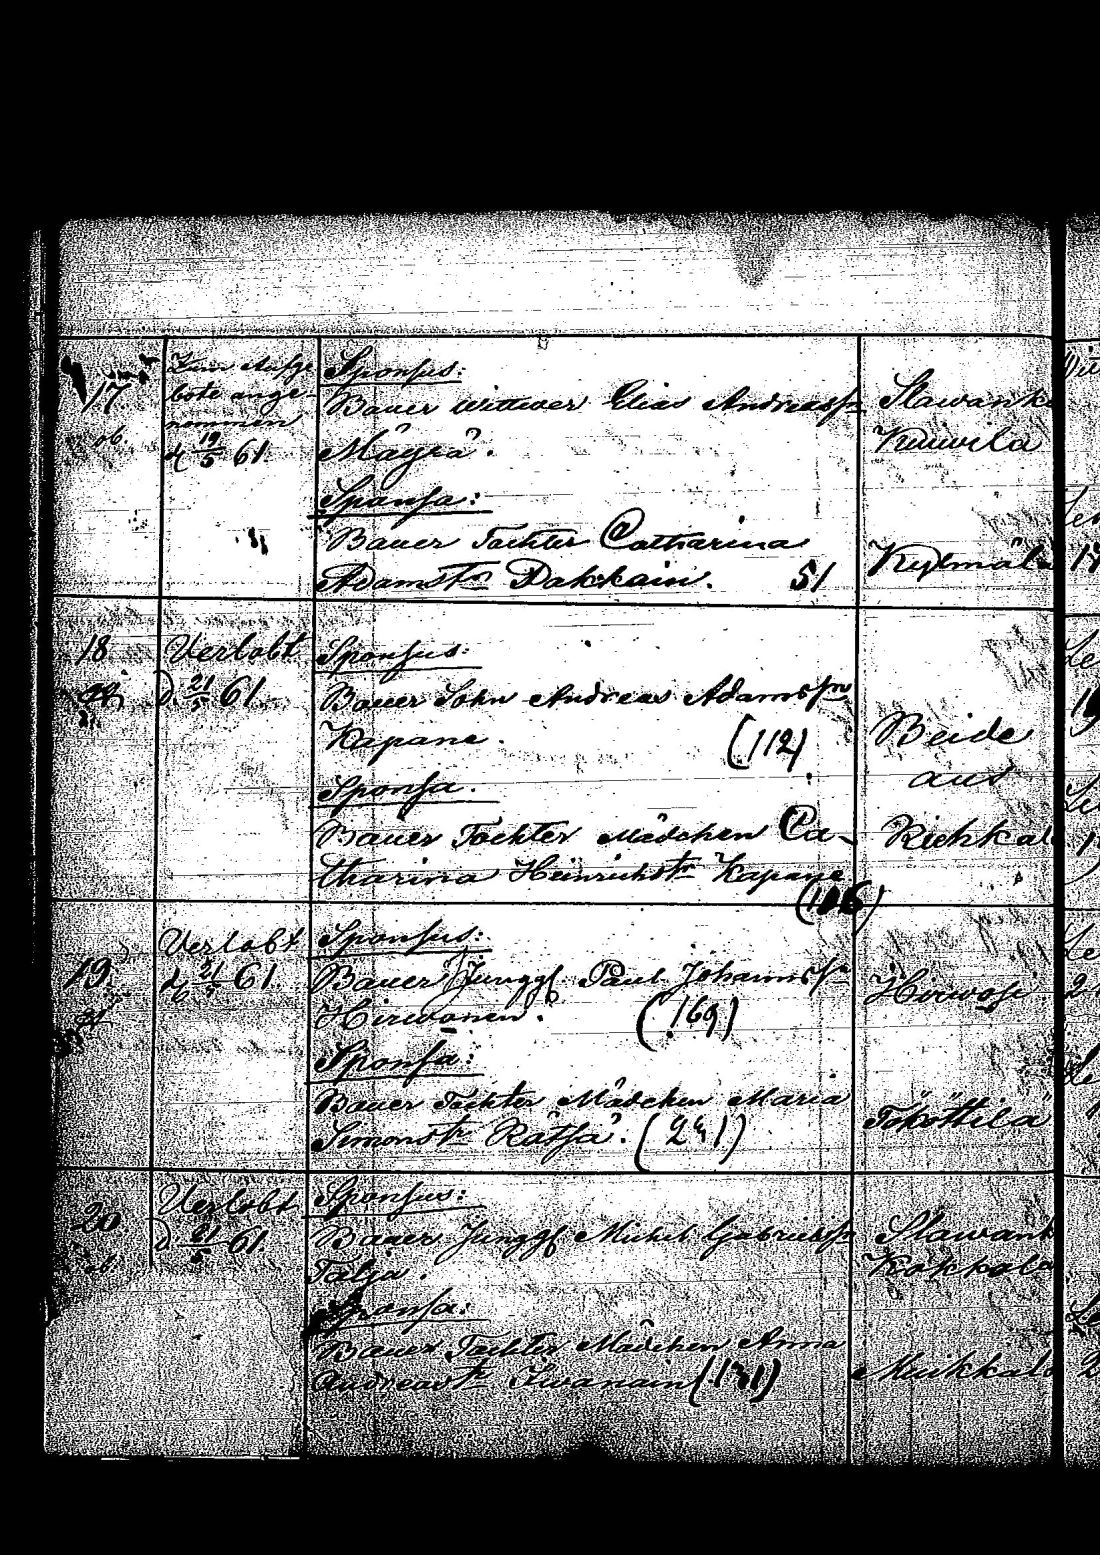 17
ob.
Zum Aufge
bote ange-
nommen
d 19/5 61.
Sponsus:
Bauer Wittwer Elias Andreassn
Mäyrä.
Slawank
Kuuwila
Sponsa:
Bauer Tochter Catharina
Adamstr Pakkain. 51
Kylmälä
18
Verlobt
d. 21/5 61.
Sponsus:
Bauer Sohn Andreas Adamssn
Kapane. (112)
Sponsa.
Bauer Tochter Mädchen Ca-
tharina Heinrichstr Kapane
(116)
Beide
aus
Riekkal
19.
Verlobt
d 21/5 61
Sponsus:
Bauer Junggs Paul Johannssn
Hirwonen. (169)
Hirwosi
Sponsa:
Bauer Tochter Mädchen Maria
Simonstr Rätsä. (241)
Tököttilä
20
ob.
Verlobt
d 21/5 61
Sponsus:
Bauer Junggs Michel Gabrielssn
Talja.
Slawank
Kokkala
Sponsa:
Bauer Tochter Mädchen Anna
Andreastr Iwanain (131)
Muikkala